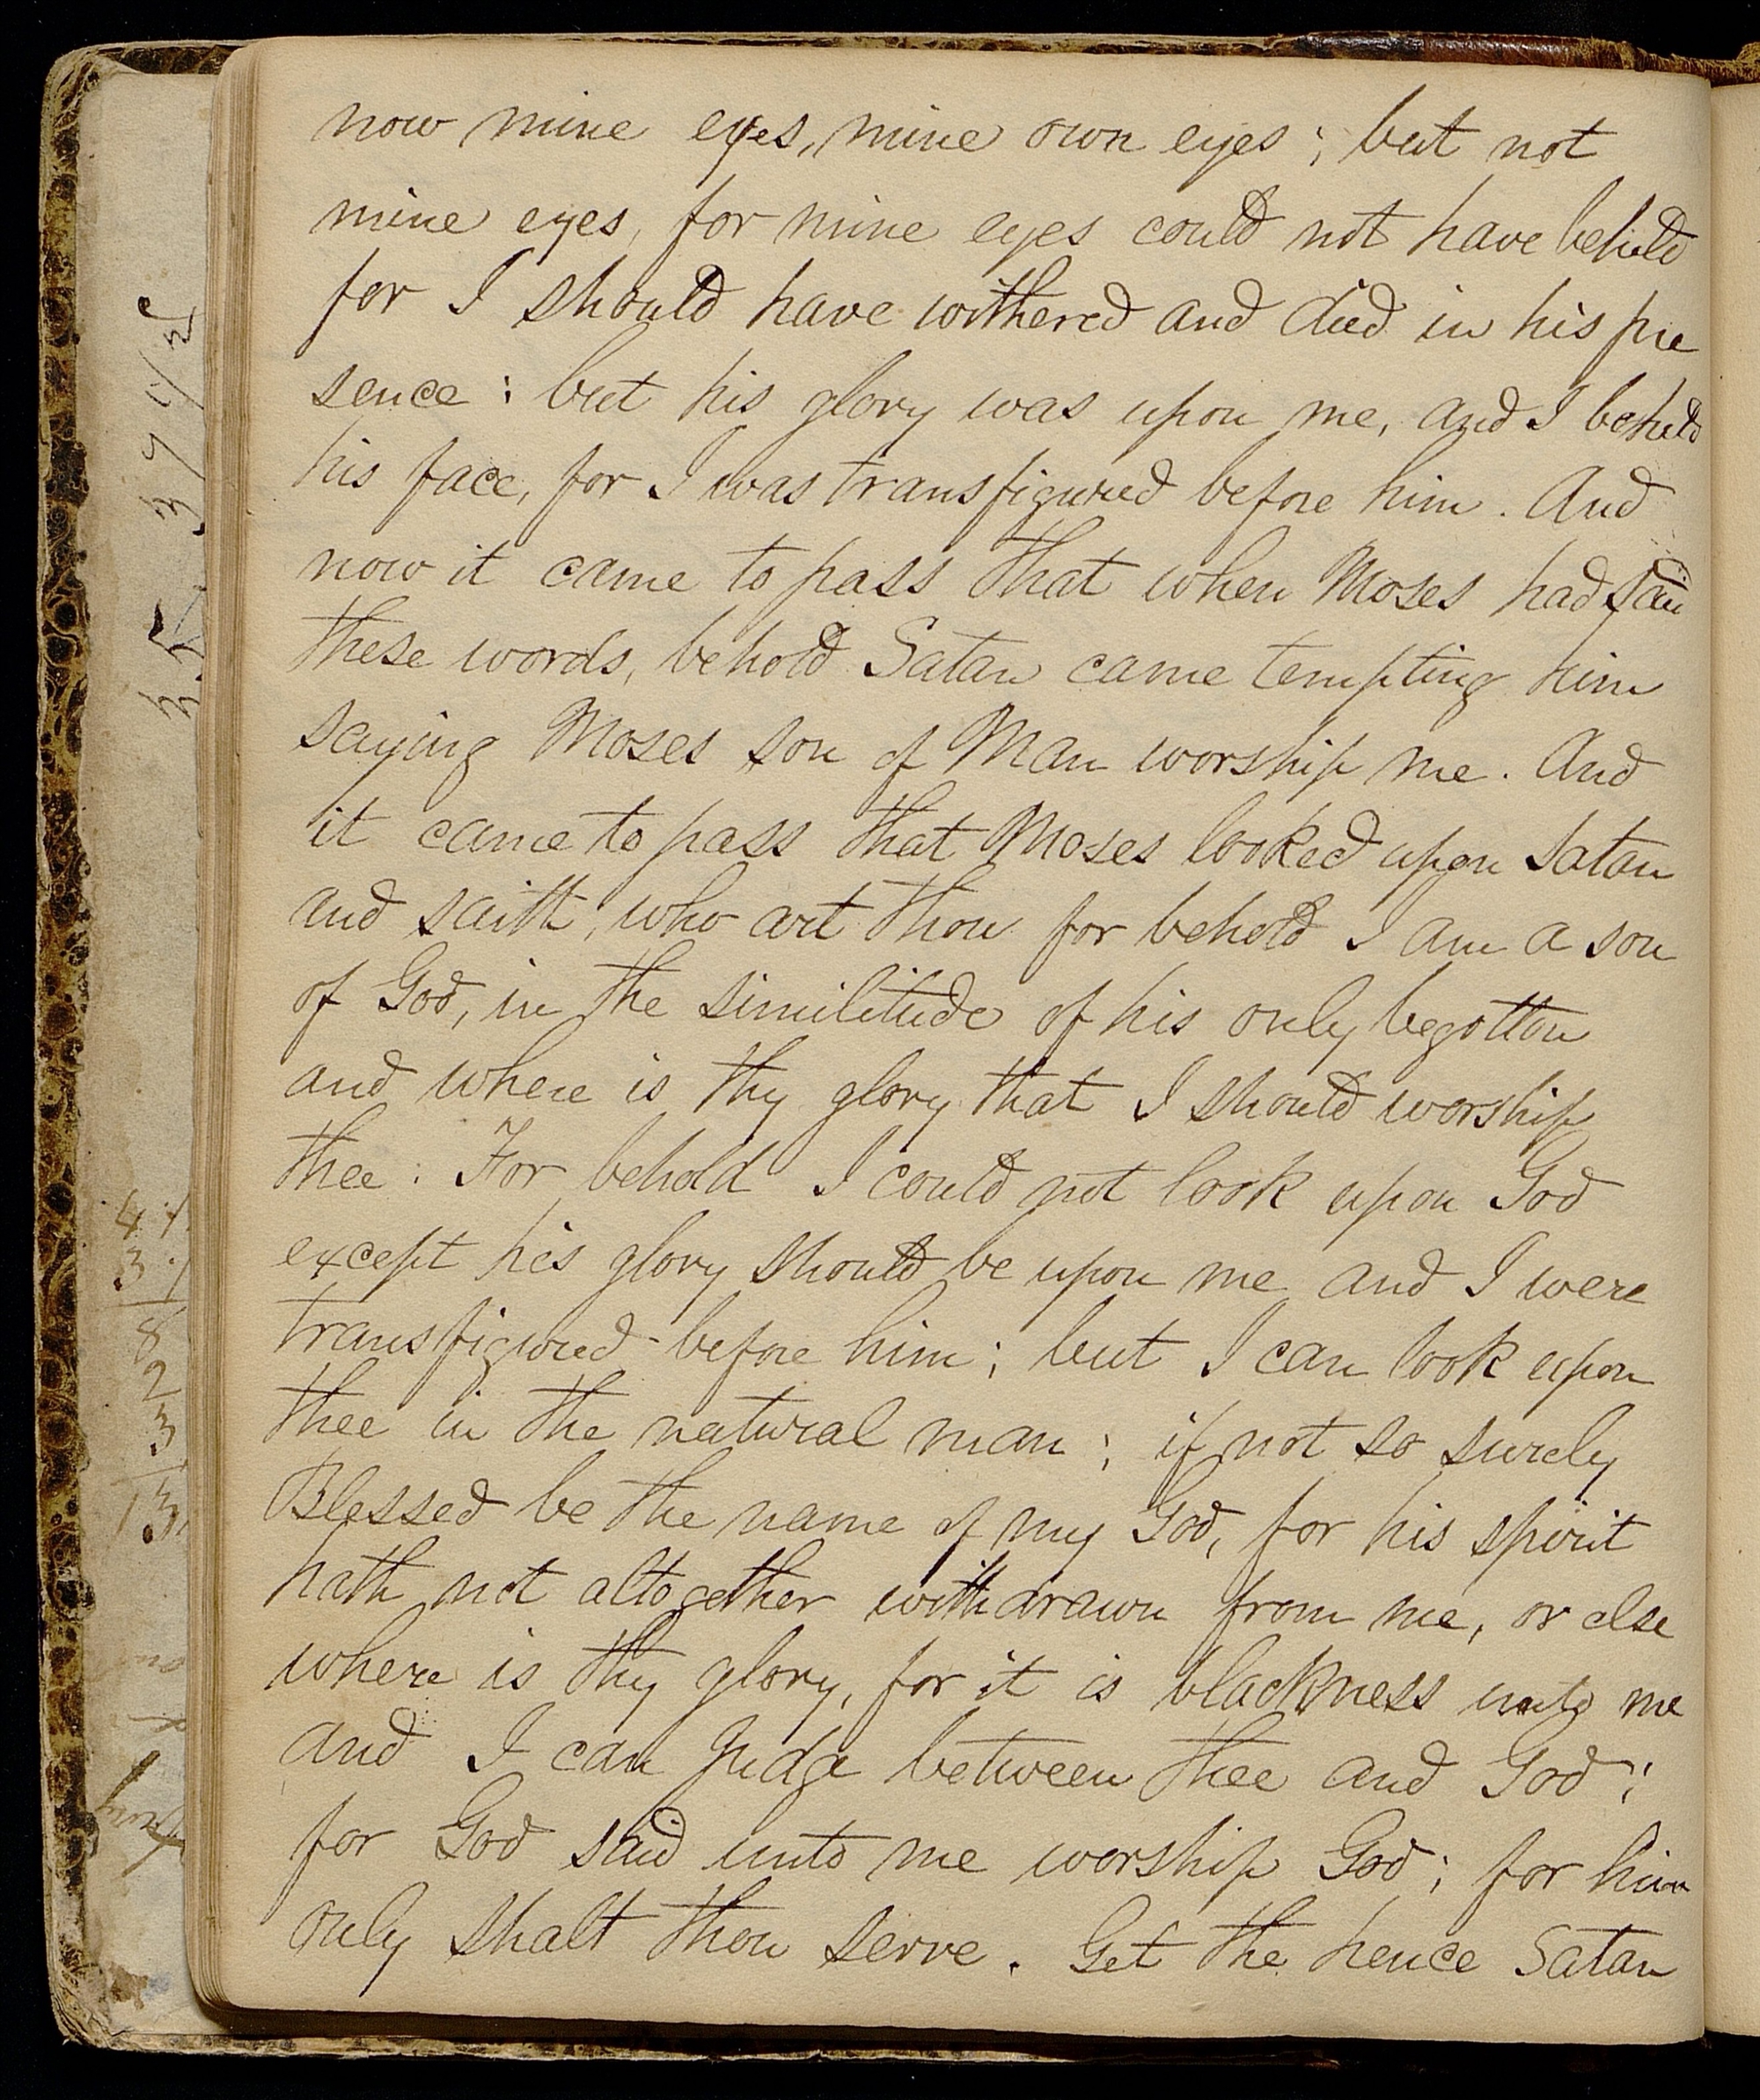 now mine eyes, mine own eyes; but not
mine eyes, for mine eyes could not have beheld
for I should have withered and died in his pre
sence; but his glory was upon me, and I beheld
his face, for I was transfigured before him. And
now it came to pass that when Moses had said
these words, behold Satan came tempting him
saying Moses son of Man worship me. And
it came to pass that Moses looked upon Satan
and saith, who art thou for behold I am a son
of God, in the similitude of his only begotton
and where is thy glory that I should worship
thee: For behold I could not look upon God
except his glory should be upon me and I were
transfigured before him; but I can look upon
thee in the natural man; if not so surely
Blessed be the name of my God, for his spirit
hath not altogether withdrawn from me, or else
where is thy glory, for it is blackness unto me
and I can Judge between thee and God;
for God said unto me worship God; for him
only shalt thou serve. Get the hence Satan
8
2
3
13